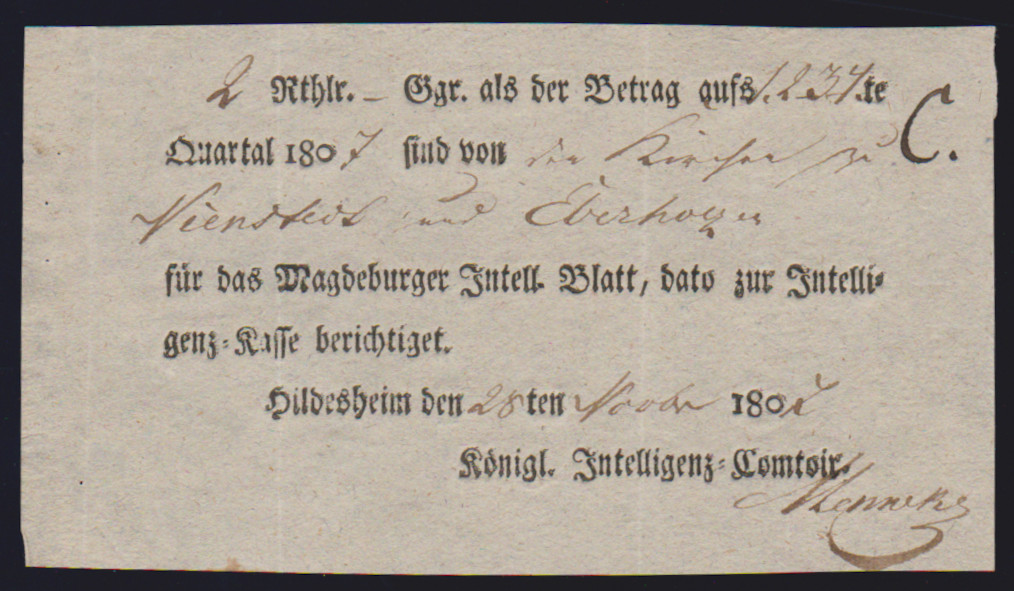 2 Rthlr. – Ggr. als der Betrag aufs 1.2 3 4.te
Quartal 1807 sind von den Kirchen zu C.
Nienstedt und Eberholzen
für das Magdeburger Intell. Blatt, dato zur Intelli-
genz-Kasse berichtiget.
Hildesheim den 28ten Novbr 1807
Königl. Intelligenz-Comtoir.